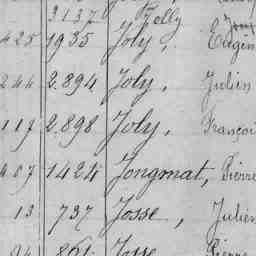 3137 Jelly
425 1935 Joly, Eugèn
244 2.894 Joly, Julien
119 2.898 Joly, Françoi
407 1424 Jongmat, Pierre
13 737 Josse, Julien
94 861 Josse Pierre